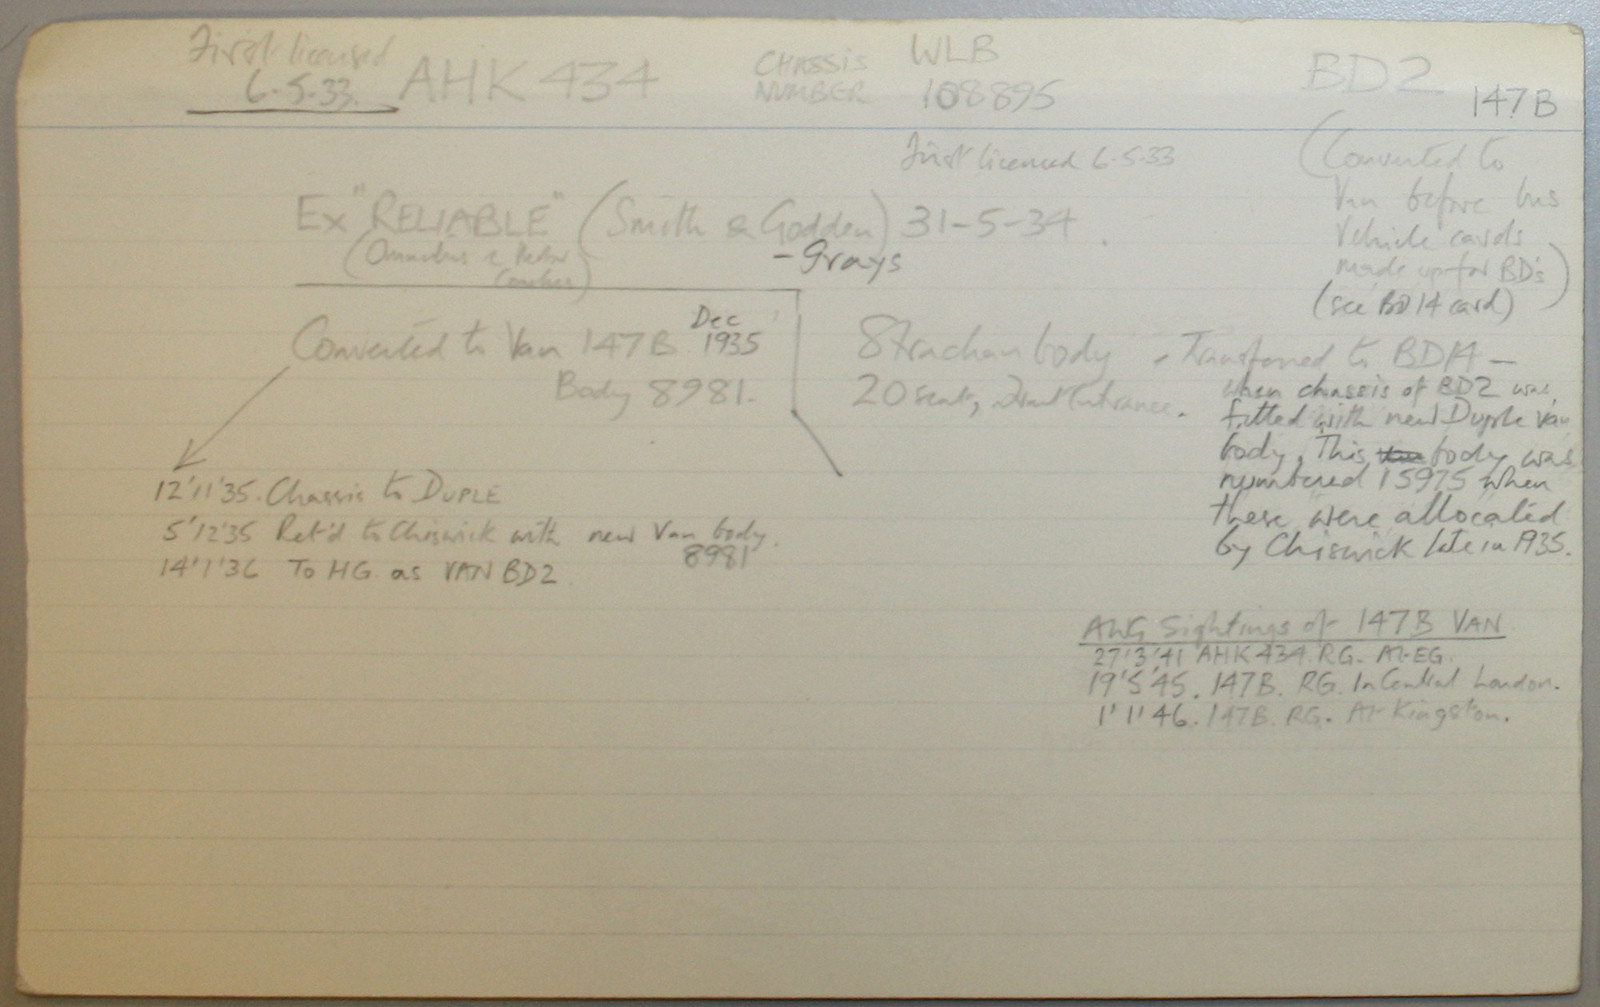 First licensed
6-5-33. AHK 434
CHASSIS
NUMBER
WLB
108895
BD2
147B
First licenced 6-5-33
(Converted to
Van before bus
vehicle cards
made up for BD's)
(see BD14 card)
Ex "RELIABLE" (Smith & Godden) 31-5-34.
- Grays
(Omnibus &
Coaches)
Converted to Van 147B Dec 1935
Body 8981.
Strachan body - Transferred to BD14 -
20 seat, Front Entrance.
when chassis of BD2 was
fitted with new Duple Van
body. This body was
numbered 15975 when
these were allocated
by Chiswick late in 1935.
12'11'35. Chassis to DUPLE
5'12'35 Ret'd to Chiswick with new Van body.
8981
14'1'36 To HG as VAN BD2.
AWG Sightings of 147B VAN
27'3'41 AHK 434. RG. At EG.
19'5'45. 147B. RG. In Central London.
1'1'46. 147B. RG. At Kingston.